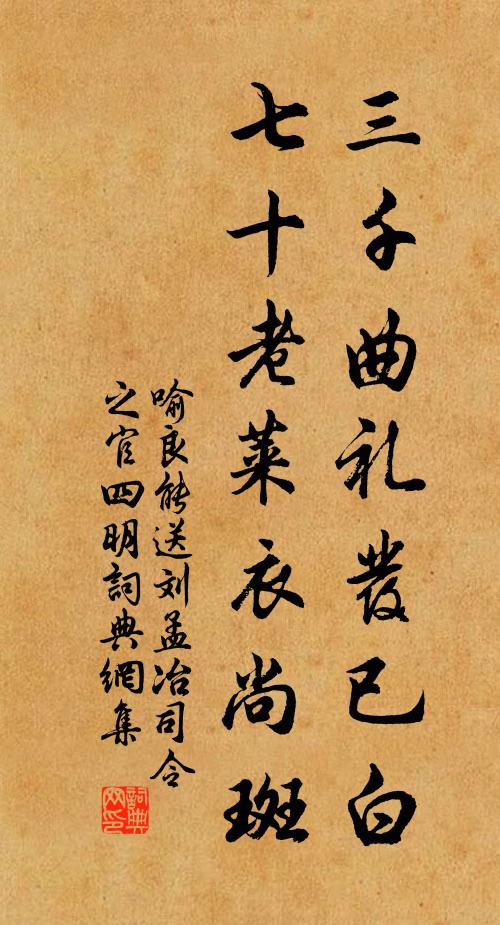 三千曲礼发已白
七十老莱衣尚斑
喻良能送刘孟冶司令
之官四明詞典網集
詞典网印